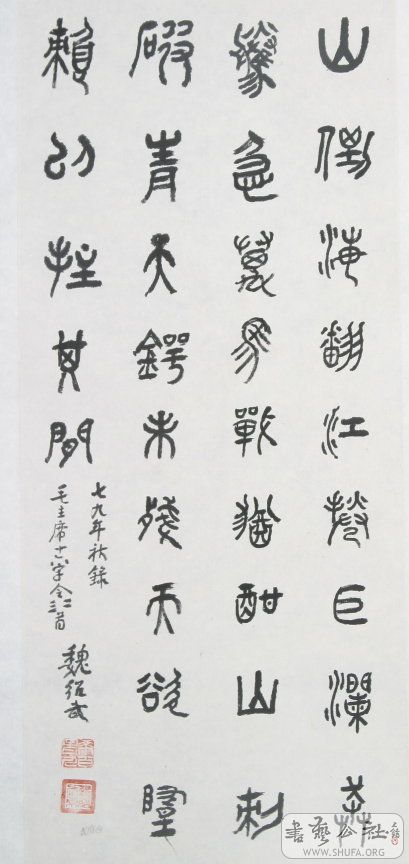 山倒海翻江捲巨瀾奔
騰急萬馬戰猶酣山刺
破青天鍔未殘天欲墮
賴以拄其間
七九年秋錄
毛主席十六字令二首
魏紹武
書藝公社
WWW.SHUFA.ORG